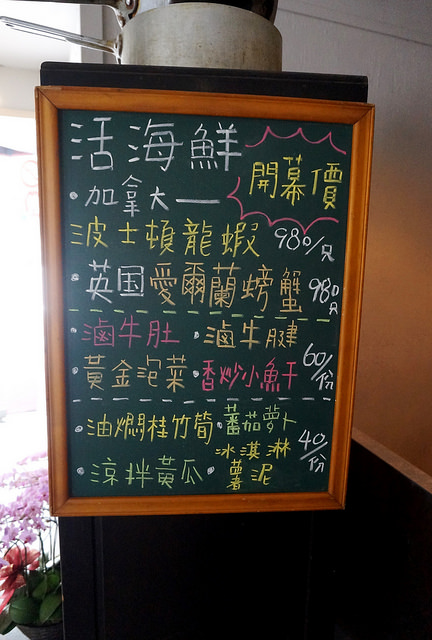 活海鮮
開幕價
·加拿大—
波士頓龍蝦 980/只
·英国愛爾蘭螃蟹 980/只
·滷牛肚 ·滷牛腱
·黃金泡菜 ·香炒小魚干 60/份
·油燜桂竹筍 ·蕃茄萝卜
冰淇淋 40/份
·涼拌黃瓜 ·薯泥